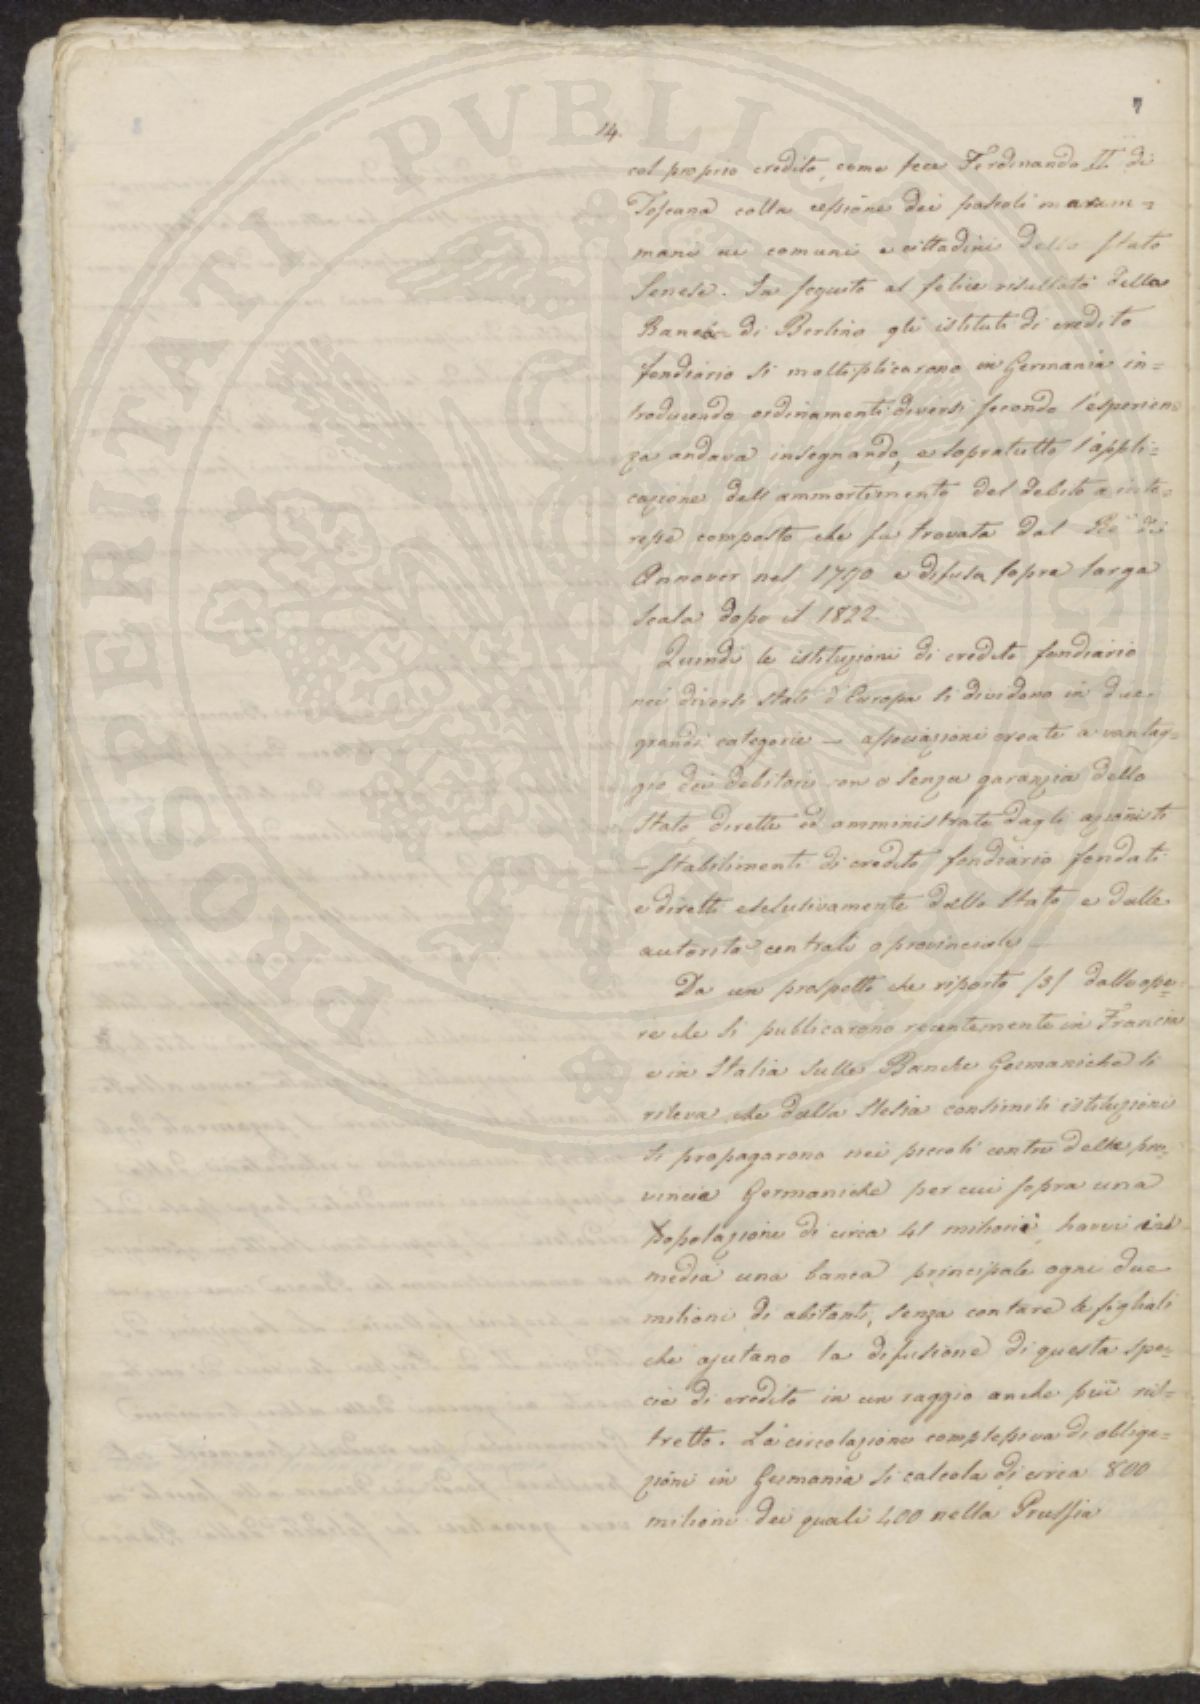 7
14.
col proprio credito, come fece Ferdinando II di
Toscana colla cessione dei pascoli marem=
mani ai comuni e cittadini dello Stato
Senese. In seguito al felice risultato della
Banca di Berlino gli istituti di credito
fondiario si moltiplicarono in Germania in=
troducendo ordinamenti diversi secondo l'esperien=
za andava insegnando, e sopratutto l'appli=
cazione dell'ammortimento del debito a inte=
resse composto che fu trovata dal Re di
Annover nel 1790 e difusa sopra larga
scala dopo il 1822.
Quindi le istituzioni di credito fondiario
nei diversi stati d'Europa si dividono in due
grandi categorie — associazioni create a vantag=
gio dei debitori con o senza garanzia dello
Stato dirette ed amministrate dagli azionisti
— stabilimenti di credito fondiario fondati
e diretti esclusivamente dallo Stato e dalle
autorità centrali o provinciali —
Da un prospetto che riporto (3) dalle ope=
re che si publicarono recentemente in Francia
e in Italia sulle Banche Germaniche si
rileva che dalla Slesia consimili istituzioni
si propagarono nei piccoli centri delle pro=
vincie Germaniche per cui sopra una
popolazione di circa 41 milioni, havvi in
media una banca principale ogni due
milioni di abitanti, senza contare le figliali
che ajutano la difusione di questa spe=
cie di credito in un raggio anche più ris=
tretto. La circolazione complessiva di obliga=
zioni in Germania si calcola di circa 800
milioni dei quali 400 nella Prussia
PROSPERITATI PUBLICAE